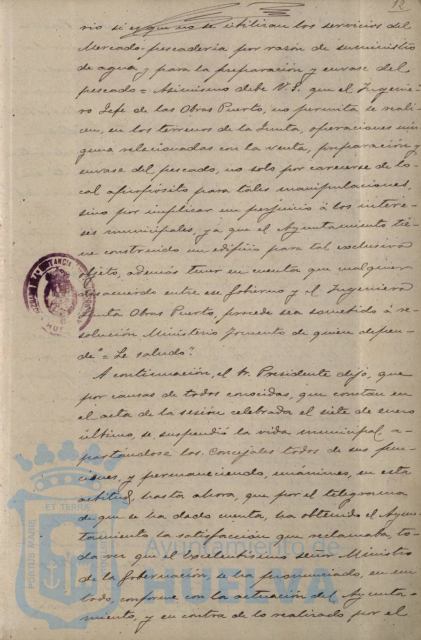 12
rio si es que no se utilizan los servicios del
Mercado-pescadería por razón de suministro
de agua y para la preparación y envase del
pescado = Asimismo debe V.S. que el Ingenie-
ro Jefe de las Obras Puerto, no permita se reali-
cen, en los terrenos de la Junta, operaciones nin-
guna relacionadas con la venta, preparación y
envase del pescado, no solo por carecerse de lo-
cal apropósito para tales manipulaciones,
sino por implicar un perjuicio á los intere-
ses municipales, ya que el Ayuntamiento tie-
ne construido un edificio para tal exclusivo
objeto, además tener en cuenta que cualquier
desacuerdo entre ese Gobierno y el Ingeniero
Junta Obras Puerto, procede sea sometido á re-
solución Ministerio Fomento de quien depen-
de" = Le saludo".
A continuación, el Sr. Presidente dijo, que
por causas de todos conocidas, que constan en
el acta de la sesión celebrada el siete de enero
último, se suspendió la vida municipal a-
partándose los Concejales todos de sus fun-
ciones, y permaneciendo, unánimes, en esta
actitud, hasta ahora, que por el telegrama
de que se ha dado cuenta, ha obtenido el Ayun-
tamiento la satisfacción que reclamaba, to-
da vez que el Excelentísimo señor Ministro
de la Gobernación, se ha pronunciado, en un
todo, conforme con la actuación del Ayunta-
miento, y en contra de lo realizado por el
PORTUS MARIS
ET TERRAE
Ayuntamiento de
HUELVA